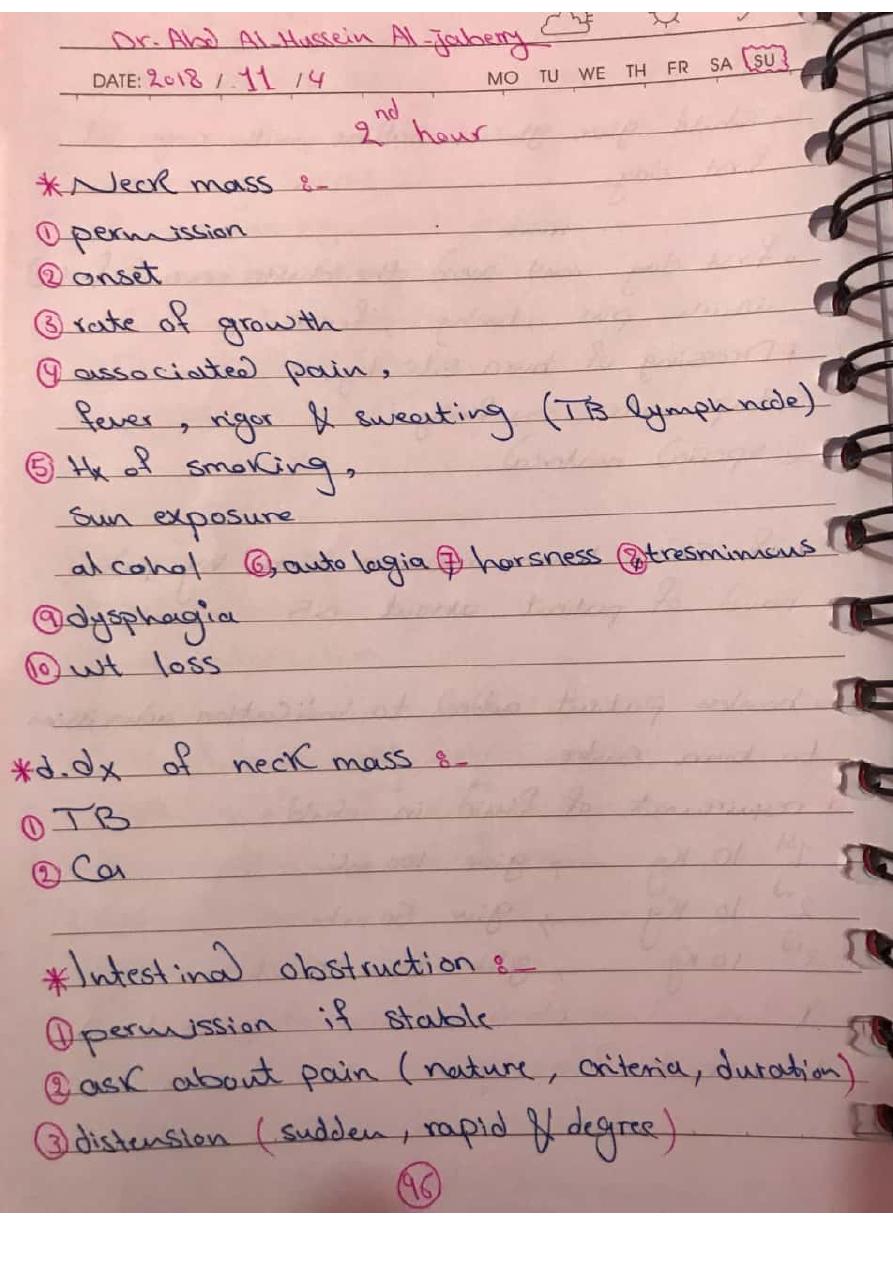 Dr. Abd Al-Hussein Al-jaberry
DATE: 2018 / 11 / 4 MO TU WE TH FR SA SU
2nd hour
* Neck mass :-
① permission
② onset
③ rate of growth
④ associated pain,
fever, rigor & sweating (TB lymph node)
⑤ Hx of smoking,
sun exposure
alcohol ⑥, auto logia ⑦ horsness ⑧ tresmimus
⑨ dysphagia
⑩ wt loss
* d.dx of neck mass :-
① TB
② Ca
* Intestinal obstruction :-
① permission if stable
② ask about pain (nature, criteria, duration)
③ distension (sudden, rapid & degree)
96